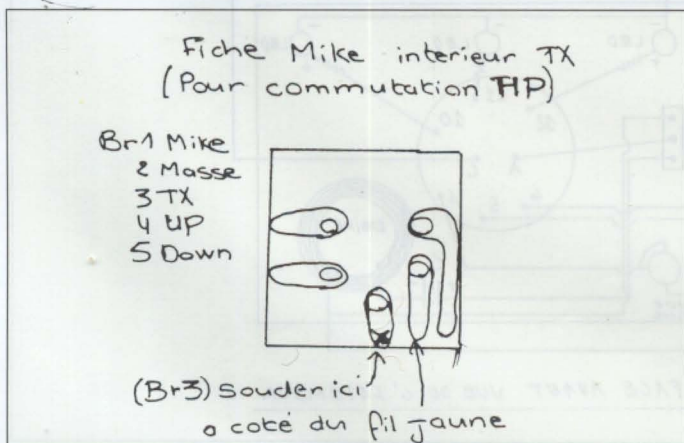 Fiche Mike interieur TX
(Pour commutation HP)
Br1 Mike
2 Masse
3 TX
4 UP
5 Down
(Br3) Souder ici
a coté du fil jaune
FACE AVANT VUE DE